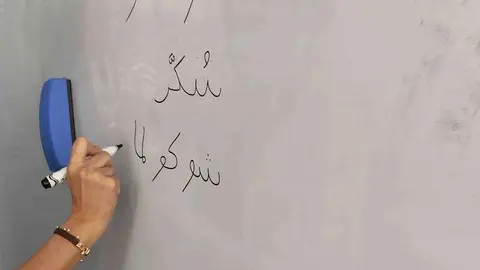 سُكَّر
شوكولا